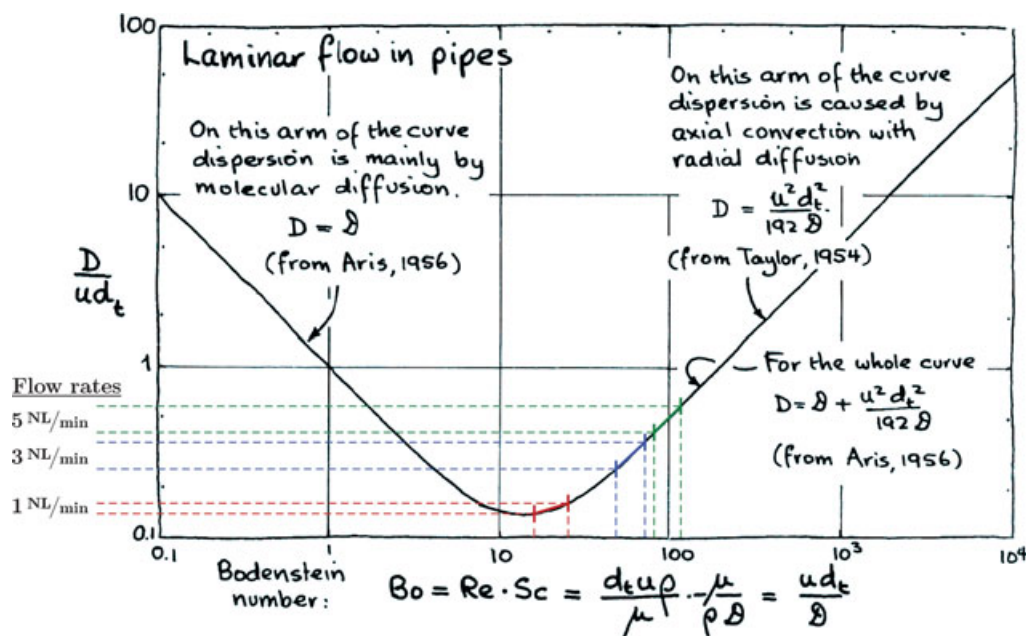 100
Laminar flow in pipes
On this arm of the curve
dispersion is mainly by
molecular diffusion.
D = 𝒟
(from Aris, 1956)
On this arm of the curve
dispersion is caused by
axial convection with
radial diffusion
D = u² d_t² / 192 𝒟
(from Taylor, 1954)
10
D / u d_t
1
For the whole curve
D = 𝒟 + u² d_t² / 192 𝒟
(from Aris, 1956)
Flow rates
5 NL/min
3 NL/min
1 NL/min
0.1
0.1 1 10 100 10³ 10⁴
Bodenstein
number:
Bo = Re · Sc = d_t u ρ / μ · μ / ρ 𝒟 = u d_t / 𝒟